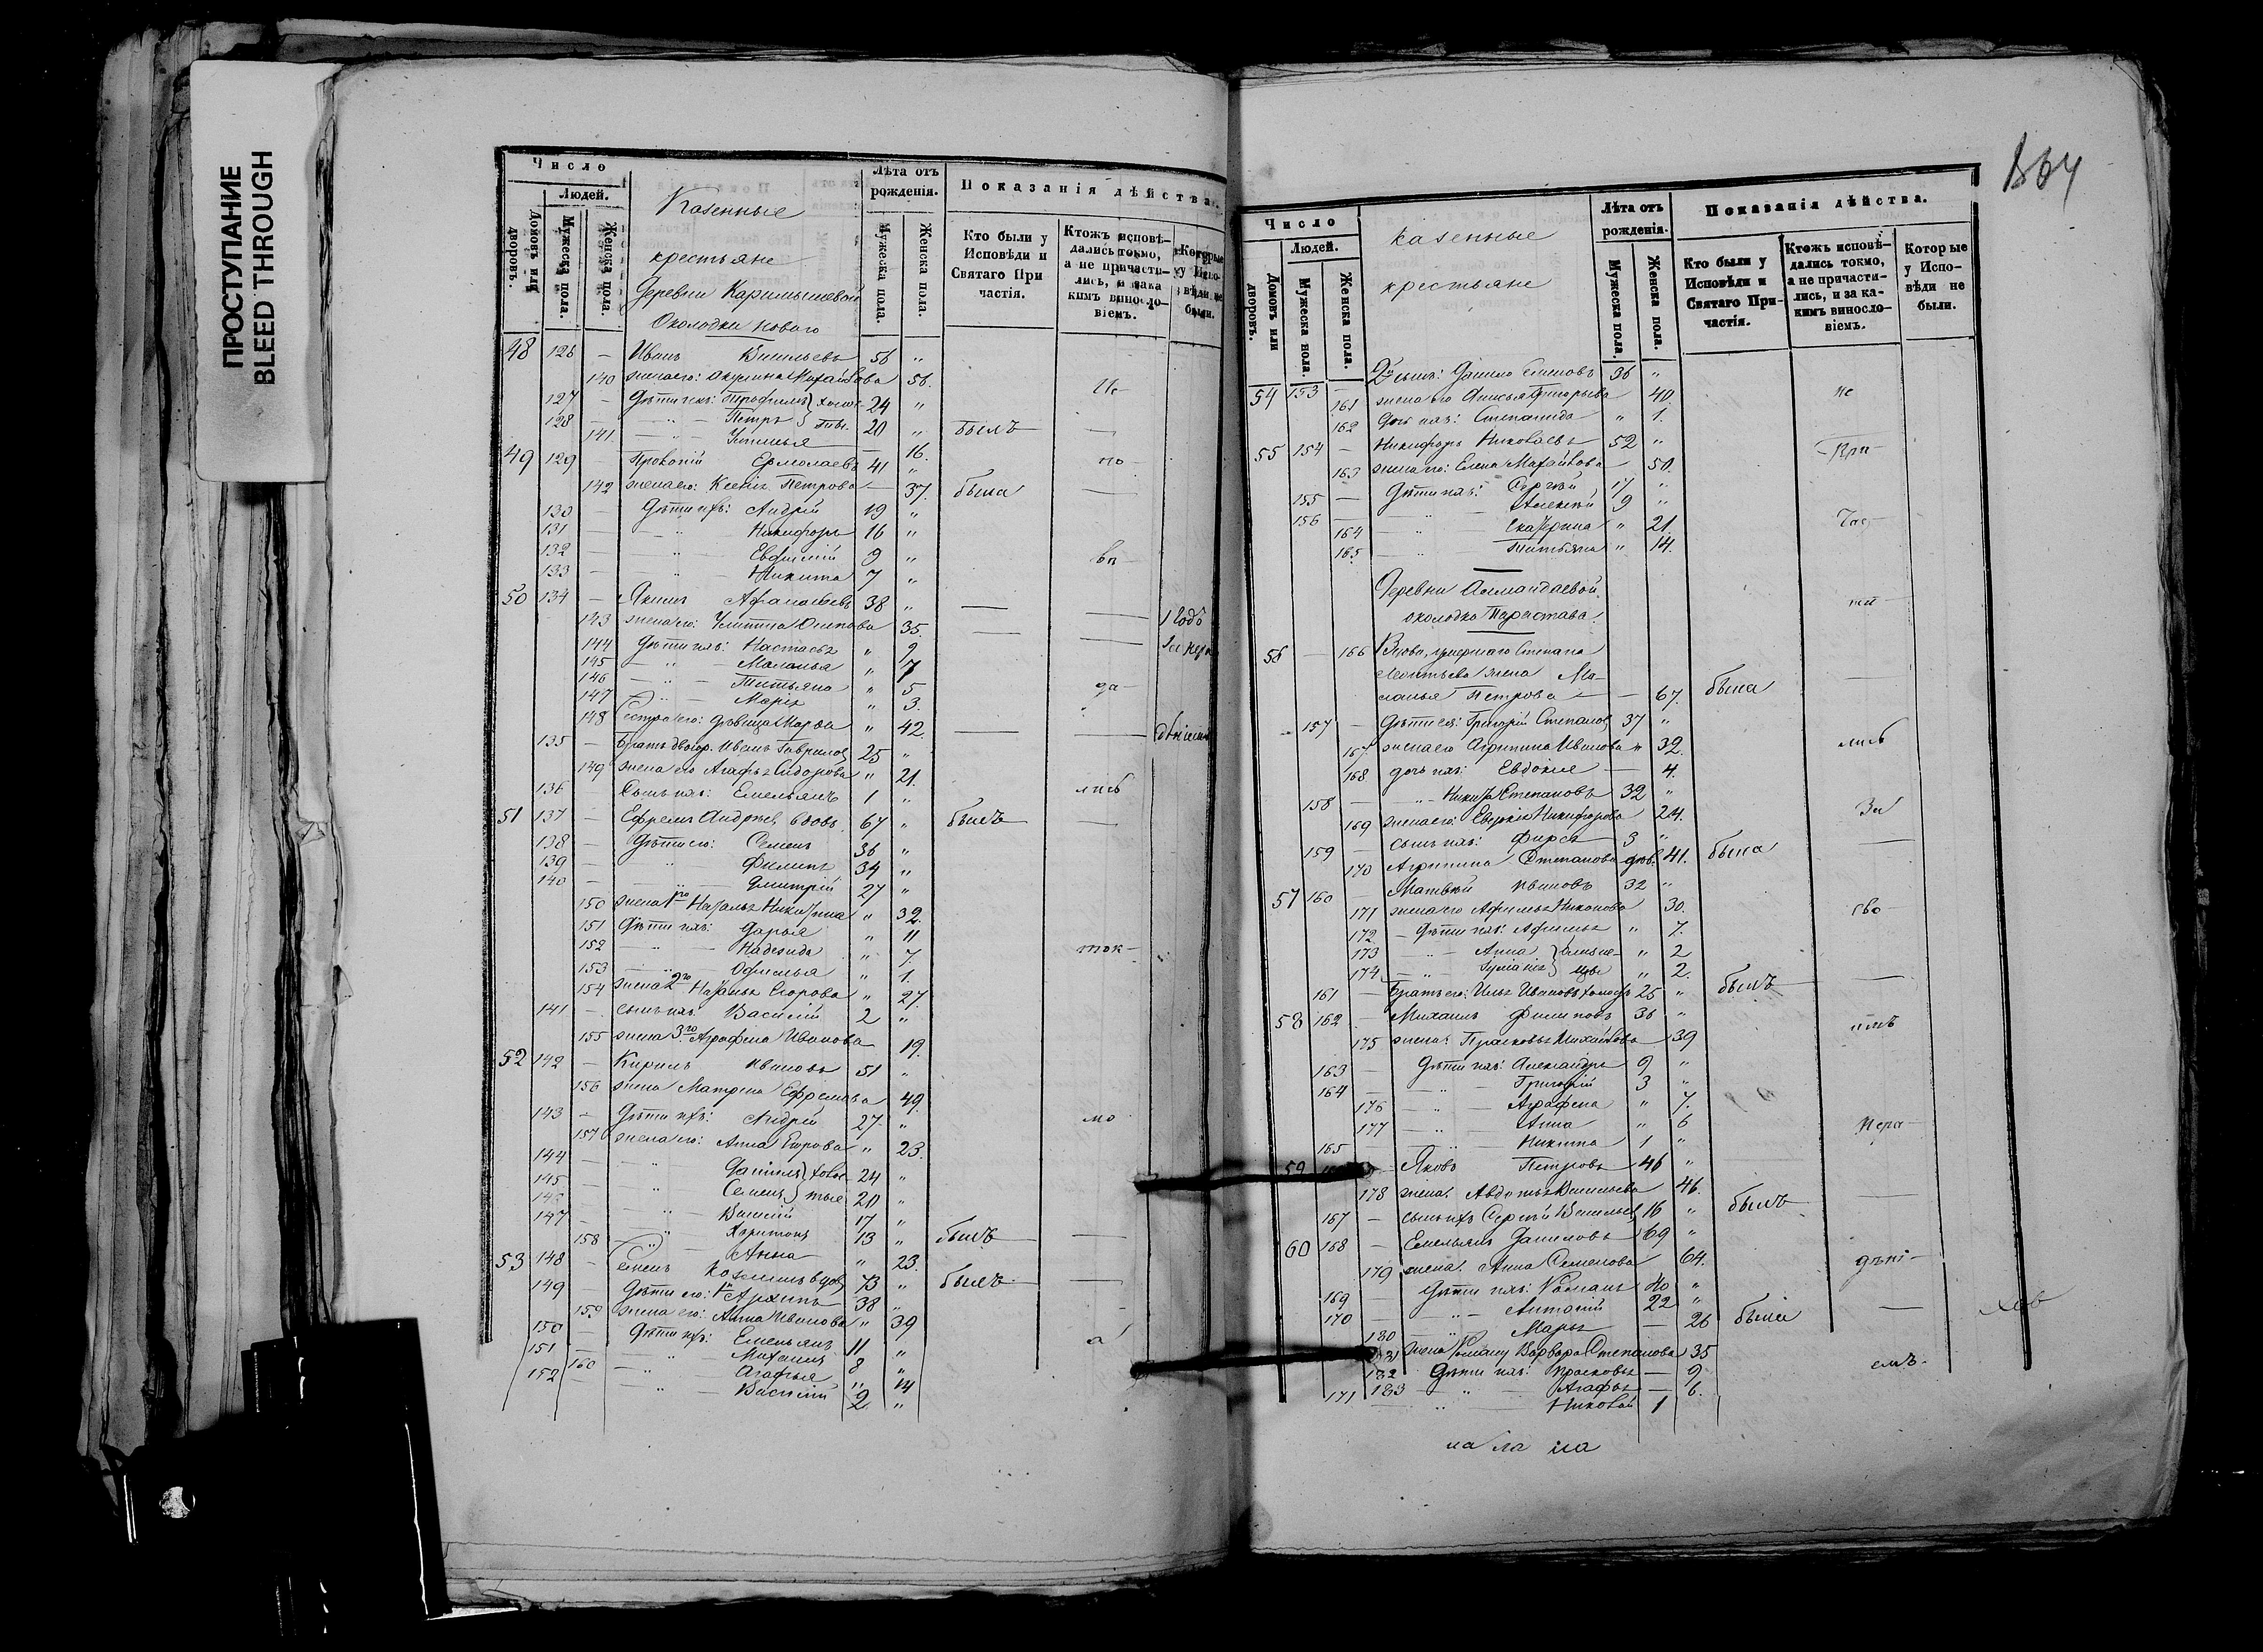 ПРОСТУПАНИЕ
BLEED THROUGH
Число
Людей.
Домовъ или дворовъ.
Мужеска пола.
Женска пола.
Казенные
крестьяне
Деревни Карамышевой
Околодки Новаго
Лѣта отъ рожденія.
Мужеска пола.
Женска пола.
Показанія дѣйства.
Кто были у Исповѣди и Святаго Причастія.
Ктожъ исповѣдались токмо, а не причастились, и зака кимъ винословіемъ.
Которые у Исповѣди не были.
48 126 — Иванъ Васильевъ 56 "
140 жена его: Акулина Михайлова 56.
127 — Дѣти ихъ: Трофимъ холос- 24 "
128 — " — Петръ тые. 20 " былъ —
141 — " — Устинья — 16.
49 129 — Прокопій Ермолаевъ 41 "
142 жена его: Ксенія Петрова — 37. была —
130 — Дѣти ихъ: Андрей 19 "
131 — " — Никифоръ 16 "
132 — " — Евфимій 9 "
133 — " — Никита 7 "
50 134 — Якимъ Афанасьевъ 38 " — — 1 годъ
143 жена его: Улитта Осипова 35. — —
144 Дѣти ихъ: Настасья " 9
145 — " — Маланья " 7
146 — " — Татьяна " 5
147 — " — Марія " 3.
148 Сестра его: дѣвица Марѳа " 42. — —
135 — Братъ двоюр. Иванъ Гавриловъ 25 "
149 жена его Агафья Сидорова " 21.
136 Сынъ ихъ: Емельянъ 1 "
51 137 — Ефремъ Андреевъ вдовъ 67 " былъ —
138 — Дѣти его: Семенъ 36 "
139 — " Филипъ 34 "
140 — " Дмитрій 27 "
150 жена 1го Наталья Никитина " 32.
151 Дѣти ихъ: Дарья " 11
152 — " — Надежда " 7
153 — " Офимья " 1.
154 жена 2го Наталья Егорова " 27.
141 — сынъ ихъ: Василій 2 "
155 жена 3го Аграфена Иванова 19.
52 142 — Кирилъ Ивановъ 51 "
156 жена Матрена Ефремова 49.
143 — Дѣти ихъ: Андрей 27. "
157 жена его: Анна Егорова " 23.
144 — " Данилъ холос- 24 "
145 — " Семенъ тые 20 "
146 — " — Василій 17 "
147 — " Харитонъ 13 " былъ —
158 — " — Анна " 23.
53 148 — Семенъ Козьминъ вдовъ 73 " былъ —
149 — Дѣти его: 1й Архипъ 38 "
159 жена его: Анна Иванова " 39
150 — Дѣти ихъ: Емельянъ 11 "
151 — " Михаилъ 8 "
160 — " Агафья " 14
152 — " Василій 2 "
Не-
по-
вѣ-
да-
лись
ток-
мо
а
Число
Людей.
Домовъ или дворовъ.
Мужеска пола.
Женска пола.
казенные
крестьяне
Лѣта отъ рожденія.
Мужеска пола.
Женска пола.
Показанія дѣйства.
Кто были у Исповѣди и Святаго Причастія.
Ктожъ исповѣдались токмо, а не причастились, и за какимъ винословіемъ.
Которые у Исповѣди не были.
54 153 — 2й сынъ: Данило Семеновъ 36 "
161 жена его Анисья Григорьева 40.
162 дочь ихъ: Степанида " 1.
55 154 — Никифоръ Николаевъ 52 "
163 жена его: Елена Михайлова 50.
155 — Дѣти ихъ: Сергѣй 17 "
156 — " Алексѣй 9 "
164 — " Екатерина " 21.
165 — " Татьяна " 14.
Деревни Асмандаевой
околодка
56 — 166 Вдова, умершаго Степана
Леонтьева жена Ма-
ланья Петрова — — 67. была —
157 — Дѣти ея: Григорій Степановъ 37 "
167 жена его Агрипина Иванова " 32.
168 дочь ихъ: Евдокія — 4.
158 — " — Никита Степановъ 32 "
169 жена его: Евдокія Никифорова 24.
159 — сынъ ихъ: Фирсъ 3 "
170 Агрипина Степанова дѣв. 41. была —
57 160 — Матвѣй Ивановъ 32 "
171 жена его Афимья Никонова 30.
172 — Дѣти ихъ: Афимья " 7.
173 — " — Анна близне- " 2
174 — " — цы " 2.
161 — Братъ его: Илья Ивановъ холостъ 25 " былъ —
58 162 — Михаилъ Филиповъ 36 "
175 жена: Прасковья Михайлова 39
163 — Дѣти ихъ: Александръ 9 "
164 — " — Григорій 3 "
176 — " — Аграфена " 7.
177 — " Анна " 6
165 — " Никита 1 "
59 — Яковъ Петровъ 46 "
178 жена: Авдотья Васильева 46.
167 — сынъ ихъ Сергѣй Васильевъ 16 " былъ —
60 168 — Емельянъ Даниловъ 69 "
179 жена: Анна Семенова 64.
169 — Дѣти ихъ: Романъ 40 "
170 — " — Антоній 22 "
180 — " Марья — 26 была —
181 жена Роману Варвара Степанова 35
182 Дѣти ихъ: Прасковья — 9.
183 — " — Агафья — 6.
171 — " — Николай 1
не
При-
час-
ти-
лись
За
сво-
имъ
нера-
дѣні-
емъ.